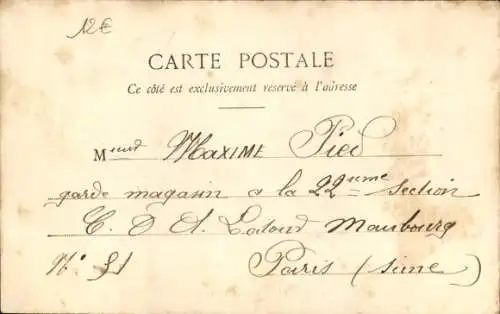 12€
CARTE POSTALE
Ce côté est exclusivement réservé à l'adresse
Meur MAXIME Pied
garde magasin a la 22eme section
C. O A. Latour Maubourg
N° 51
Paris (sine)